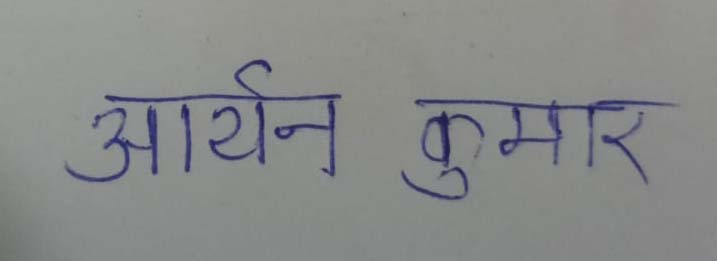 आर्यन कुमार